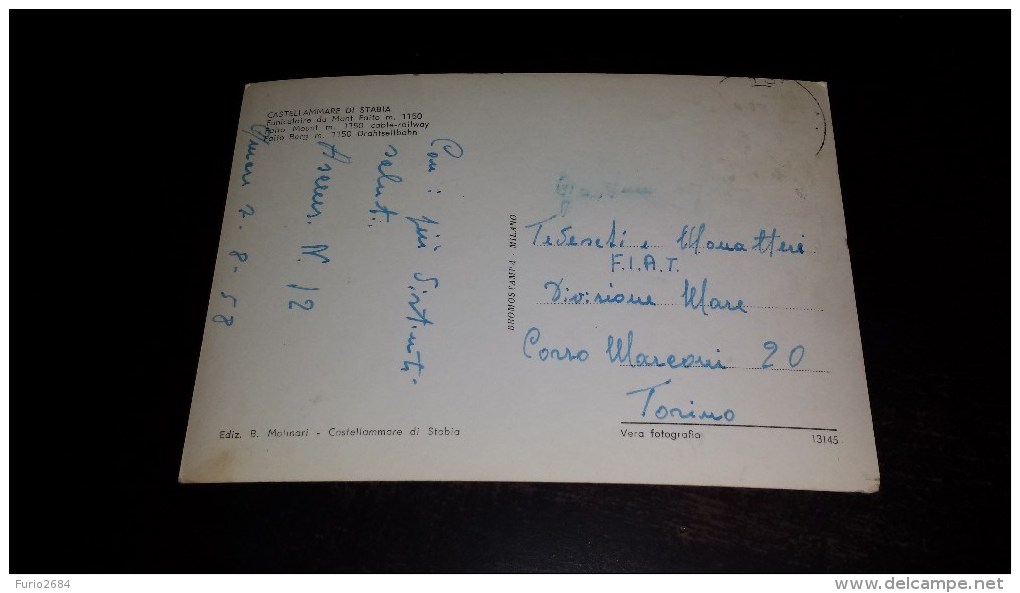 CASTELLAMMARE DI STABIA
Funiculaire du Mont Faito m. 1150
Faito Mount m. 1150 cable-railway
Faito Berg m. 1150 Drahtseilbahn
Con i più distinti
saluti
N. 12
2-8-58
BROMOSTAMPA - MILANO
Tedeschi e Monatteri
F.I.A.T.
Divisione Mare
Corso Marconi 20
Torino
Ediz. B. Molinari - Castellammare di Stabia
Vera fotografia
13145
Furio2684
www.delcampe.net